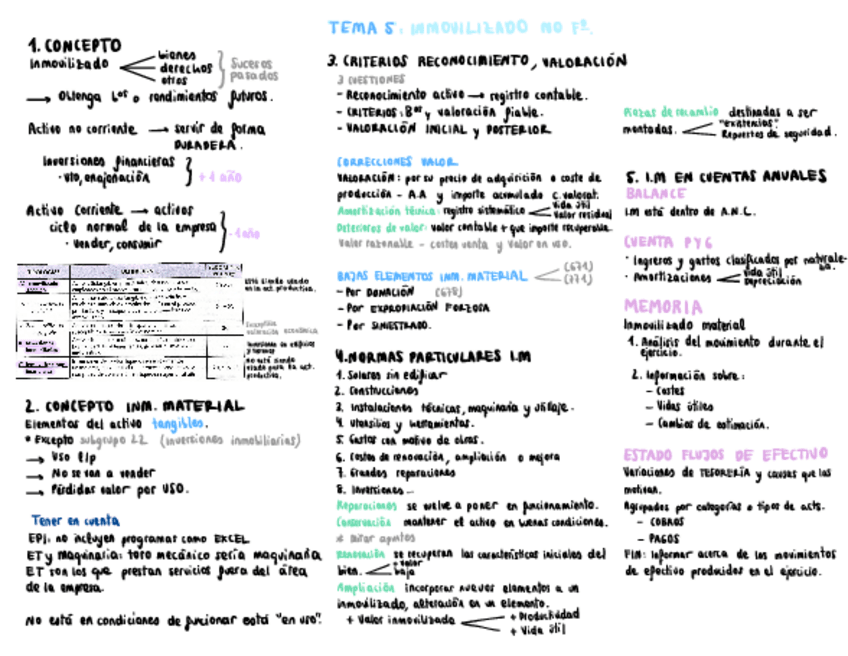 TEMA 5: INMOVILIZADO NO Fº.
1. CONCEPTO
Inmovilizado
bienes
derechos
otros
Sucesos
pasados
→ Obtenga Bºs o rendimientos futuros.
Activo no corriente → servir de forma
DURADERA.
Inversiones financieras
· vto, enajenación
+ 1 año
Activo Corriente → activos
ciclo normal de la empresa
· Vender, consumir
- 1 año
está siendo usado
en la act. productiva.
no está siendo
usado para la act.
productiva.
2. CONCEPTO INM. MATERIAL
Elementos del activo tangibles.
* Excepto subgrupo 22 (inversiones inmobiliarias)
→ Uso l/p
→ No se van a vender
→ Pérdidas valor por USO.
Tener en cuenta
EPI: no incluyen programas como EXCEL
ET y maquinaria: toro mecánico sería maquinaria
ET son los que prestan servicios fuera del área
de la empresa.
No está en condiciones de funcionar está "en uso".
3. CRITERIOS RECONOCIMIENTO, VALORACIÓN
3 CUESTIONES
- Reconocimiento activo → registro contable.
- CRITERIOS: Bºs y valoración fiable.
- VALORACIÓN INICIAL y POSTERIOR
CORRECCIONES VALOR
VALORACIÓN: por su precio de adquisición o coste de
producción - A.A y importe acumulado c. valorat.
Amortización técnica: registro sistemático
Vida útil
Valor residual
Deterioros de valor: valor contable + que importe recuperable.
Valor razonable - costes venta y valor en uso.
BAJAS ELEMENTOS INM. MATERIAL
(671)
(771)
- Por DONACIÓN (678)
- Por EXPROPIACIÓN FORZOSA
- Por SINIESTRADO.
4. NORMAS PARTICULARES I.M
1. Solares sin edificar
2. Construcciones
3. Instalaciones técnicas, maquinaria y utillaje.
4. Utensilios y herramientas.
5. Gastos con motivo de obras.
6. Costes de renovación, ampliación o mejora
7. Grandes reparaciones
8. Inversiones...
Reparaciones se vuelve a poner en funcionamiento.
Conservación mantener el activo en buenas condiciones.
* mirar apuntes
Renovación se recuperan las características iniciales del
bien.
+ valor
baja
Ampliación incorporar nuevos elementos a un
inmovilizado, alteración en un elemento.
+ Valor inmovilizado
+ Productividad
+ Vida útil
Piezas de recambio destinadas a ser
montadas.
"Existencias"
Repuestos de seguridad.
5. I.M EN CUENTAS ANUALES
BALANCE
I.M está dentro de A.N.C.
CUENTA PYG
· Ingresos y gastos clasificados por naturale-
za.
· Amortizaciones
vida útil
Depreciación
MEMORIA
Inmovilizado material
1. Análisis del movimiento durante el
ejercicio.
2. Información sobre:
- Costes
- Vidas útiles
- Cambios de estimación.
ESTADO FLUJOS DE EFECTIVO
Variaciones de TESORERÍA y causas que las
motivan.
Agrupados por categorías o tipos de acts.
- COBROS
- PAGOS
FIN: Informar acerca de los movimientos
de efectivo producidos en el ejercicio.